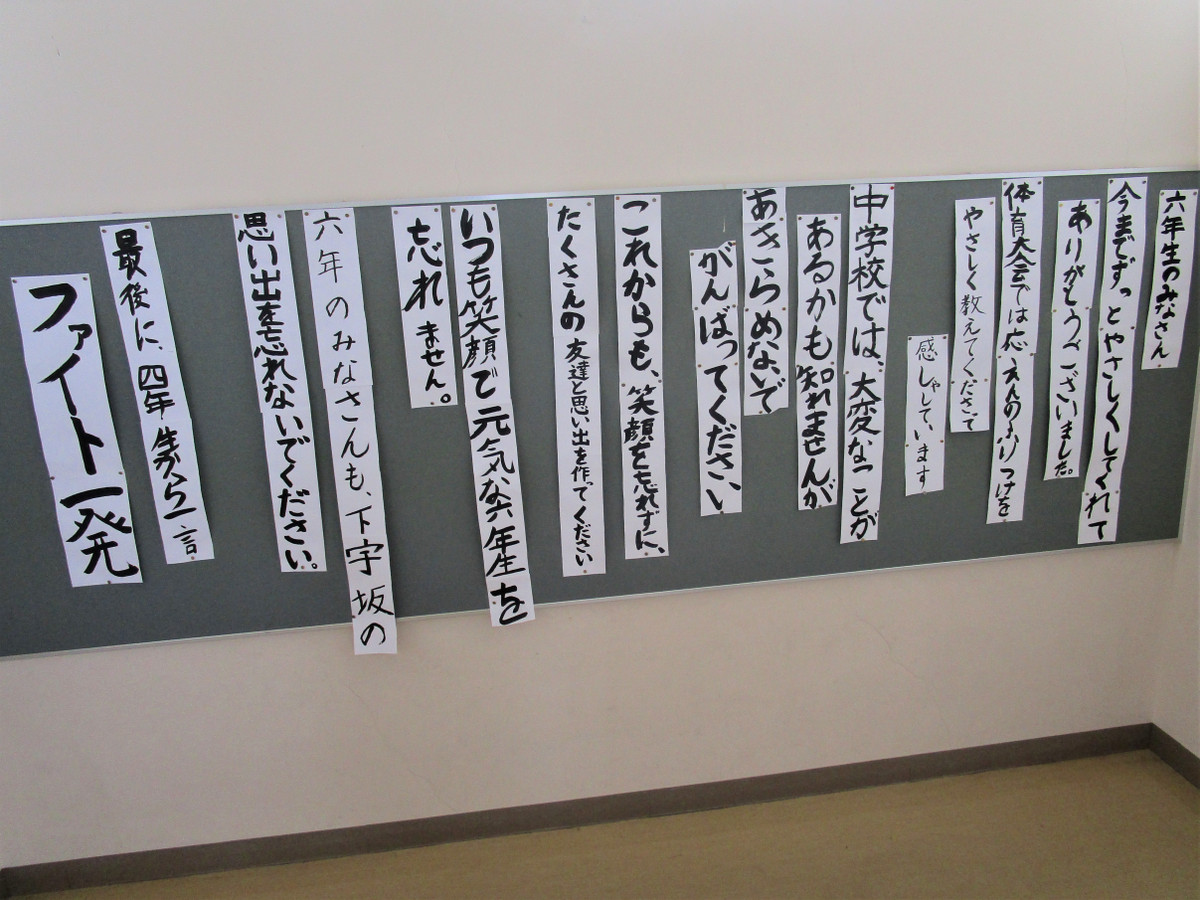 六年生のみなさん
今までずっとやさしくしてくれて
ありがとうございました。
体育大会では応えんのふりつけを
やさしく教えてくださって
感しゃしています
中学校では、大変なことが
あるかも知れませんが
あきらめないで
がんばってください
これからも、笑顔を忘れずに、
たくさんの友達と思い出を作ってください
いつも笑顔で元気な六年生を
忘れません。
六年のみなさんも、下宇坂の
思い出を忘れないでください。
最後に、四年生から一言
ファイト一発